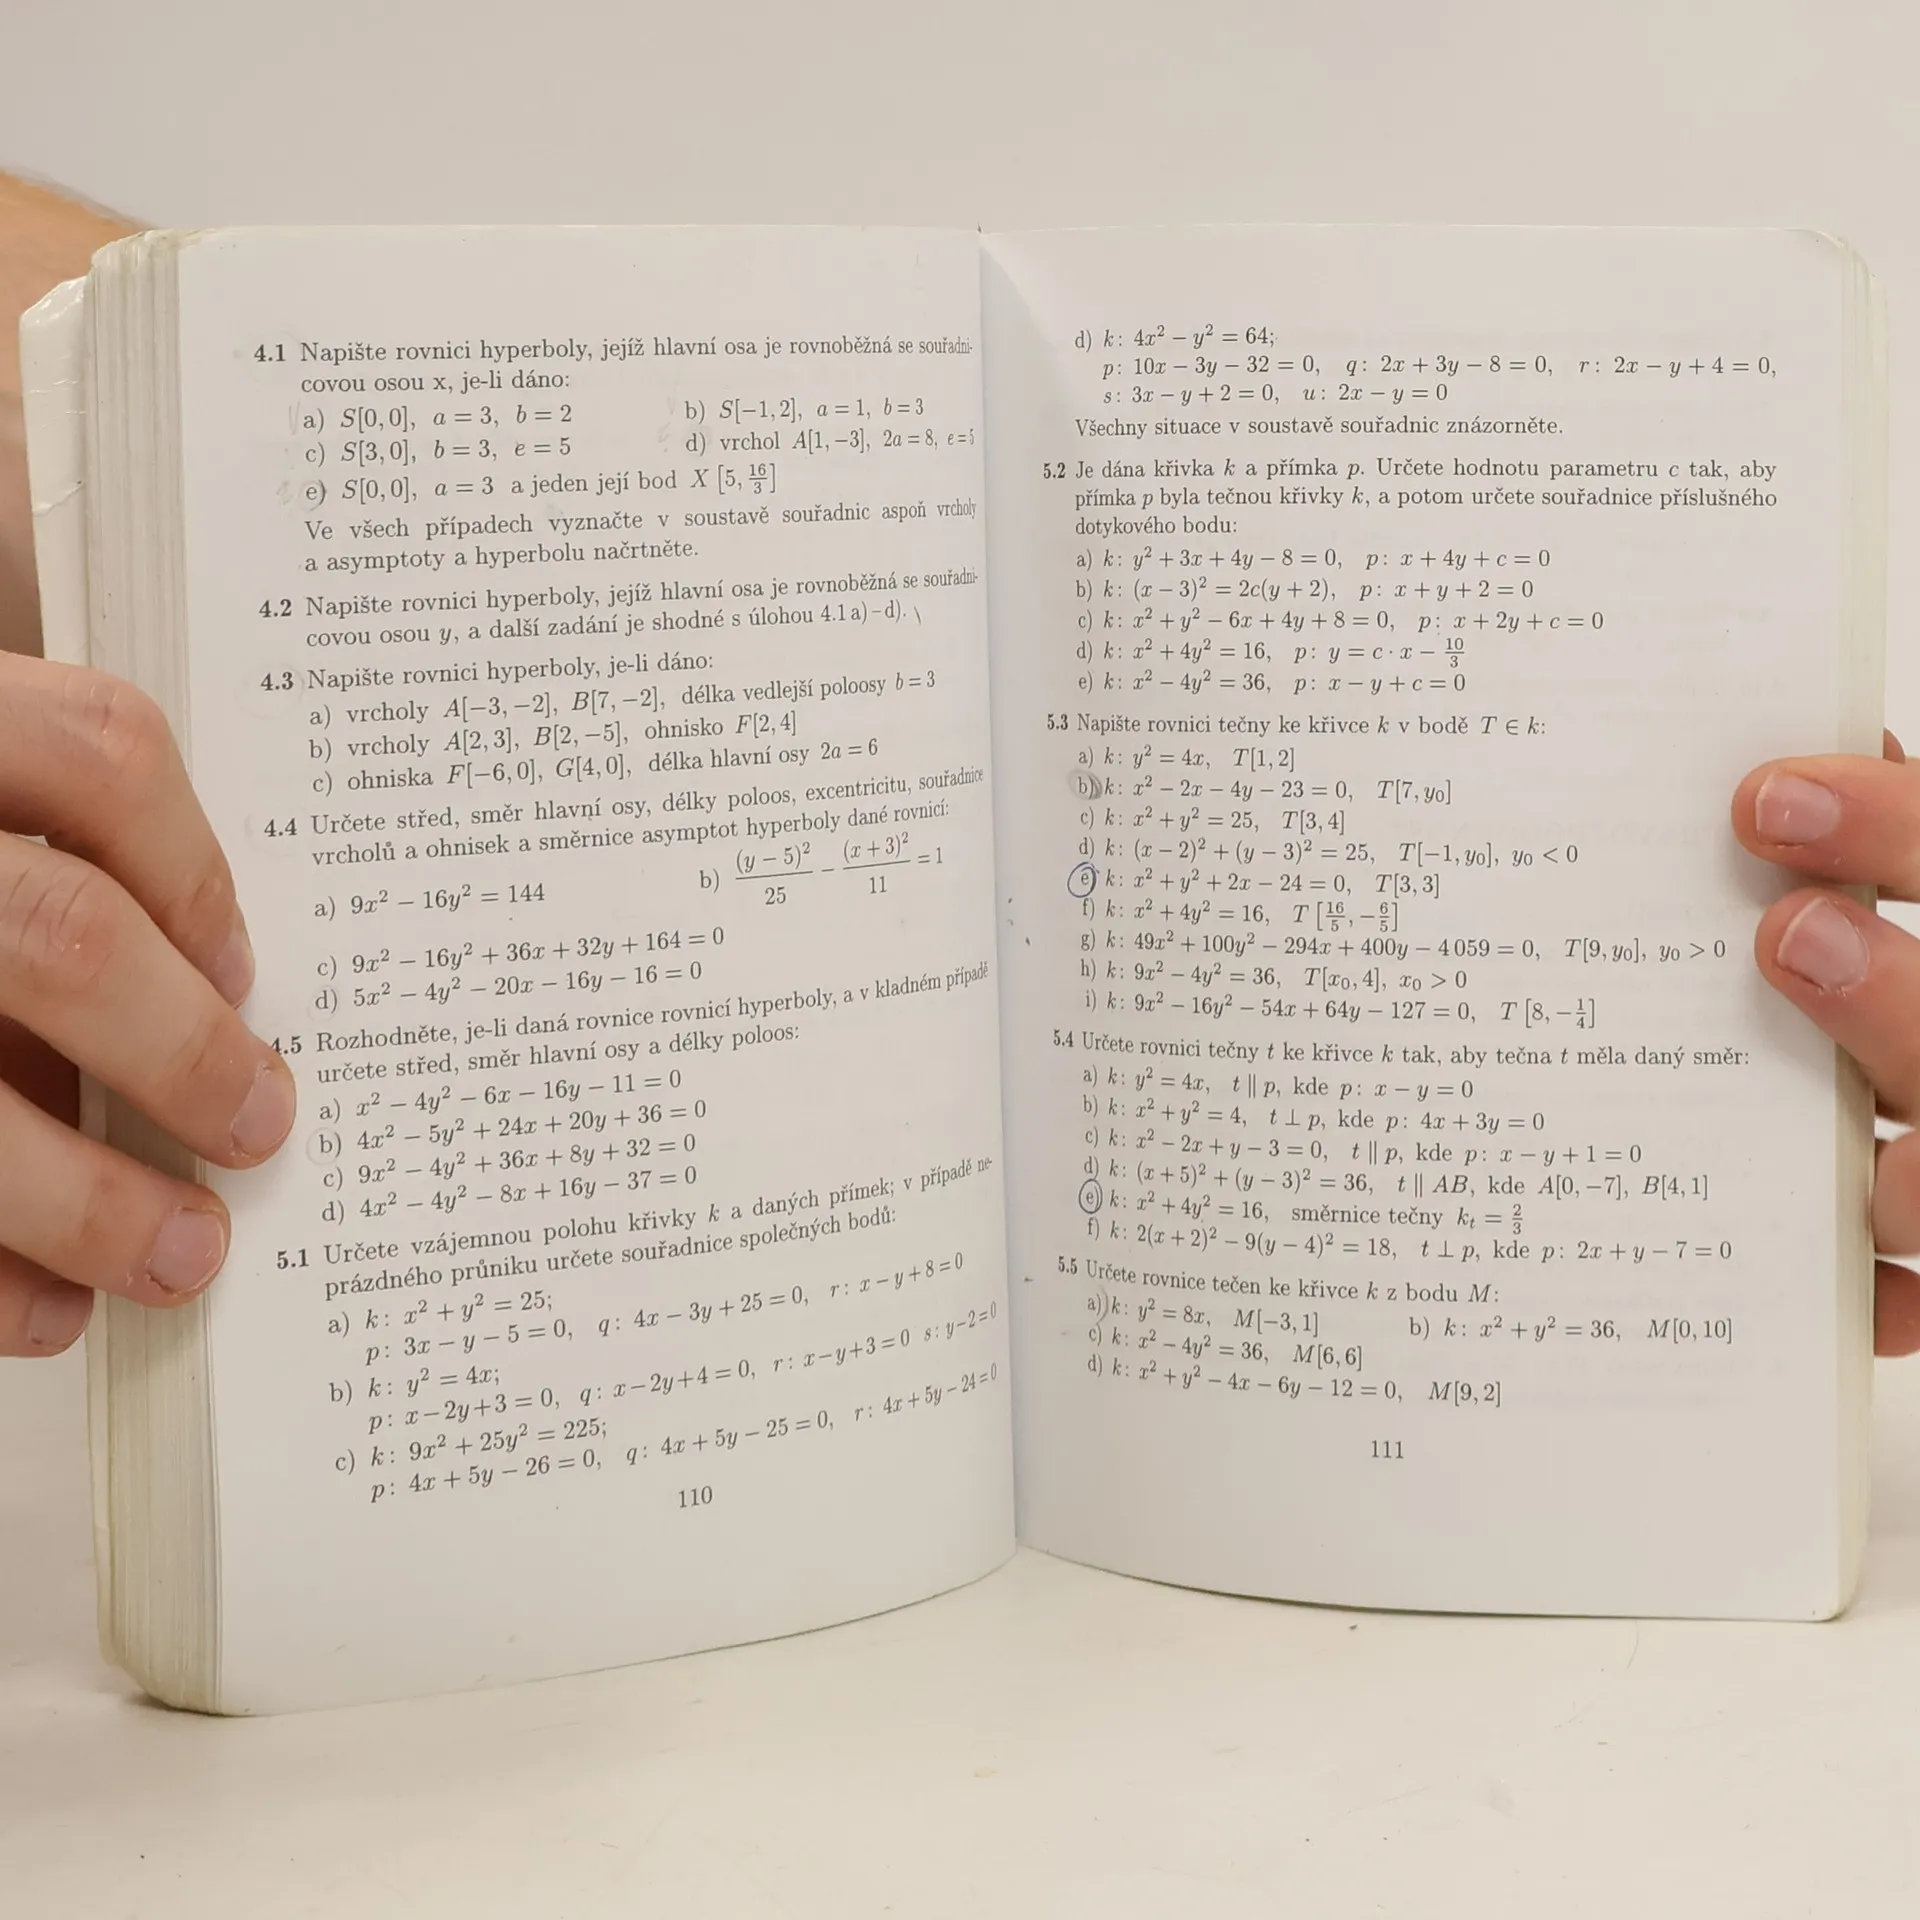 4.1 Napište rovnici hyperboly, jejíž hlavní osa je rovnoběžná se souřadni-
covou osou x, je-li dáno:
a) S[0,0], a = 3, b = 2 b) S[−1,2], a = 1, b = 3
c) S[3,0], b = 3, e = 5 d) vrchol A[1,−3], 2a = 8, e = 5
e) S[0,0], a = 3 a jeden její bod X [5, 16/3]
Ve všech případech vyznačte v soustavě souřadnic aspoň vrcholy
a asymptoty a hyperbolu načrtněte.
4.2 Napište rovnici hyperboly, jejíž hlavní osa je rovnoběžná se souřadni-
covou osou y, a další zadání je shodné s úlohou 4.1 a)–d).
4.3 Napište rovnici hyperboly, je-li dáno:
a) vrcholy A[−3,−2], B[7,−2], délka vedlejší poloosy b = 3
b) vrcholy A[2,3], B[2,−5], ohnisko F[2,4]
c) ohniska F[−6,0], G[4,0], délka hlavní osy 2a = 6
4.4 Určete střed, směr hlavní osy, délky poloos, excentricitu, souřadnice
vrcholů a ohnisek a směrnice asymptot hyperboly dané rovnicí:
a) 9x² − 16y² = 144 b) (y − 5)²/25 − (x + 3)²/11 = 1
c) 9x² − 16y² + 36x + 32y + 164 = 0
d) 5x² − 4y² − 20x − 16y − 16 = 0
4.5 Rozhodněte, je-li daná rovnice rovnicí hyperboly, a v kladném případě
určete střed, směr hlavní osy a délky poloos:
a) x² − 4y² − 6x − 16y − 11 = 0
b) 4x² − 5y² + 24x + 20y + 36 = 0
c) 9x² − 4y² + 36x + 8y + 32 = 0
d) 4x² − 4y² − 8x + 16y − 37 = 0
5.1 Určete vzájemnou polohu křivky k a daných přímek; v případě ne-
prázdného průniku určete souřadnice společných bodů:
a) k: x² + y² = 25;
p: 3x − y − 5 = 0, q: 4x − 3y + 25 = 0, r: x − y + 8 = 0
b) k: y² = 4x;
p: x − 2y + 3 = 0, q: x − 2y + 4 = 0, r: x − y + 3 = 0 s: y − 2 = 0
c) k: 9x² + 25y² = 225;
p: 4x + 5y − 26 = 0, q: 4x + 5y − 25 = 0, r: 4x + 5y − 24 = 0
110
d) k: 4x² − y² = 64;
p: 10x − 3y − 32 = 0, q: 2x + 3y − 8 = 0, r: 2x − y + 4 = 0,
s: 3x − y + 2 = 0, u: 2x − y = 0
Všechny situace v soustavě souřadnic znázorněte.
5.2 Je dána křivka k a přímka p. Určete hodnotu parametru c tak, aby
přímka p byla tečnou křivky k, a potom určete souřadnice příslušného
dotykového bodu:
a) k: y² + 3x + 4y − 8 = 0, p: x + 4y + c = 0
b) k: (x − 3)² = 2c(y + 2), p: x + y + 2 = 0
c) k: x² + y² − 6x + 4y + 8 = 0, p: x + 2y + c = 0
d) k: x² + 4y² = 16, p: y = c · x − 10/3
e) k: x² − 4y² = 36, p: x − y + c = 0
5.3 Napište rovnici tečny ke křivce k v bodě T ∈ k:
a) k: y² = 4x, T[1,2]
b) k: x² − 2x − 4y − 23 = 0, T[7, y₀]
c) k: x² + y² = 25, T[3,4]
d) k: (x − 2)² + (y − 3)² = 25, T[−1, y₀], y₀ < 0
e) k: x² + y² + 2x − 24 = 0, T[3,3]
f) k: x² + 4y² = 16, T [16/5, −6/5]
g) k: 49x² + 100y² − 294x + 400y − 4 059 = 0, T[9, y₀], y₀ > 0
h) k: 9x² − 4y² = 36, T[x₀, 4], x₀ > 0
i) k: 9x² − 16y² − 54x + 64y − 127 = 0, T [8, −1/4]
5.4 Určete rovnici tečny t ke křivce k tak, aby tečna t měla daný směr:
a) k: y² = 4x, t ∥ p, kde p: x − y = 0
b) k: x² + y² = 4, t ⊥ p, kde p: 4x + 3y = 0
c) k: x² − 2x + y − 3 = 0, t ∥ p, kde p: x − y + 1 = 0
d) k: (x + 5)² + (y − 3)² = 36, t ∥ AB, kde A[0,−7], B[4,1]
e) k: x² + 4y² = 16, směrnice tečny kₜ = 2/3
f) k: 2(x + 2)² − 9(y − 4)² = 18, t ⊥ p, kde p: 2x + y − 7 = 0
5.5 Určete rovnice tečen ke křivce k z bodu M:
a) k: y² = 8x, M[−3,1] b) k: x² + y² = 36, M[0,10]
c) k: x² − 4y² = 36, M[6,6]
d) k: x² + y² − 4x − 6y − 12 = 0, M[9,2]
111